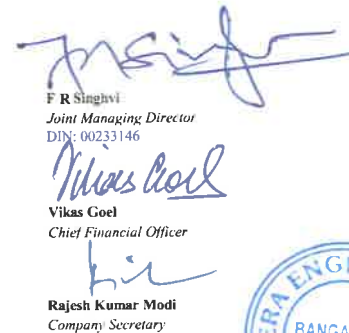 F R Singhvi
Joint Managing Director
DIN: 00233146
Vikas Goel
Vikas Goel
Chief Financial Officer
Rajesh Kumar Modi
Company Secretary